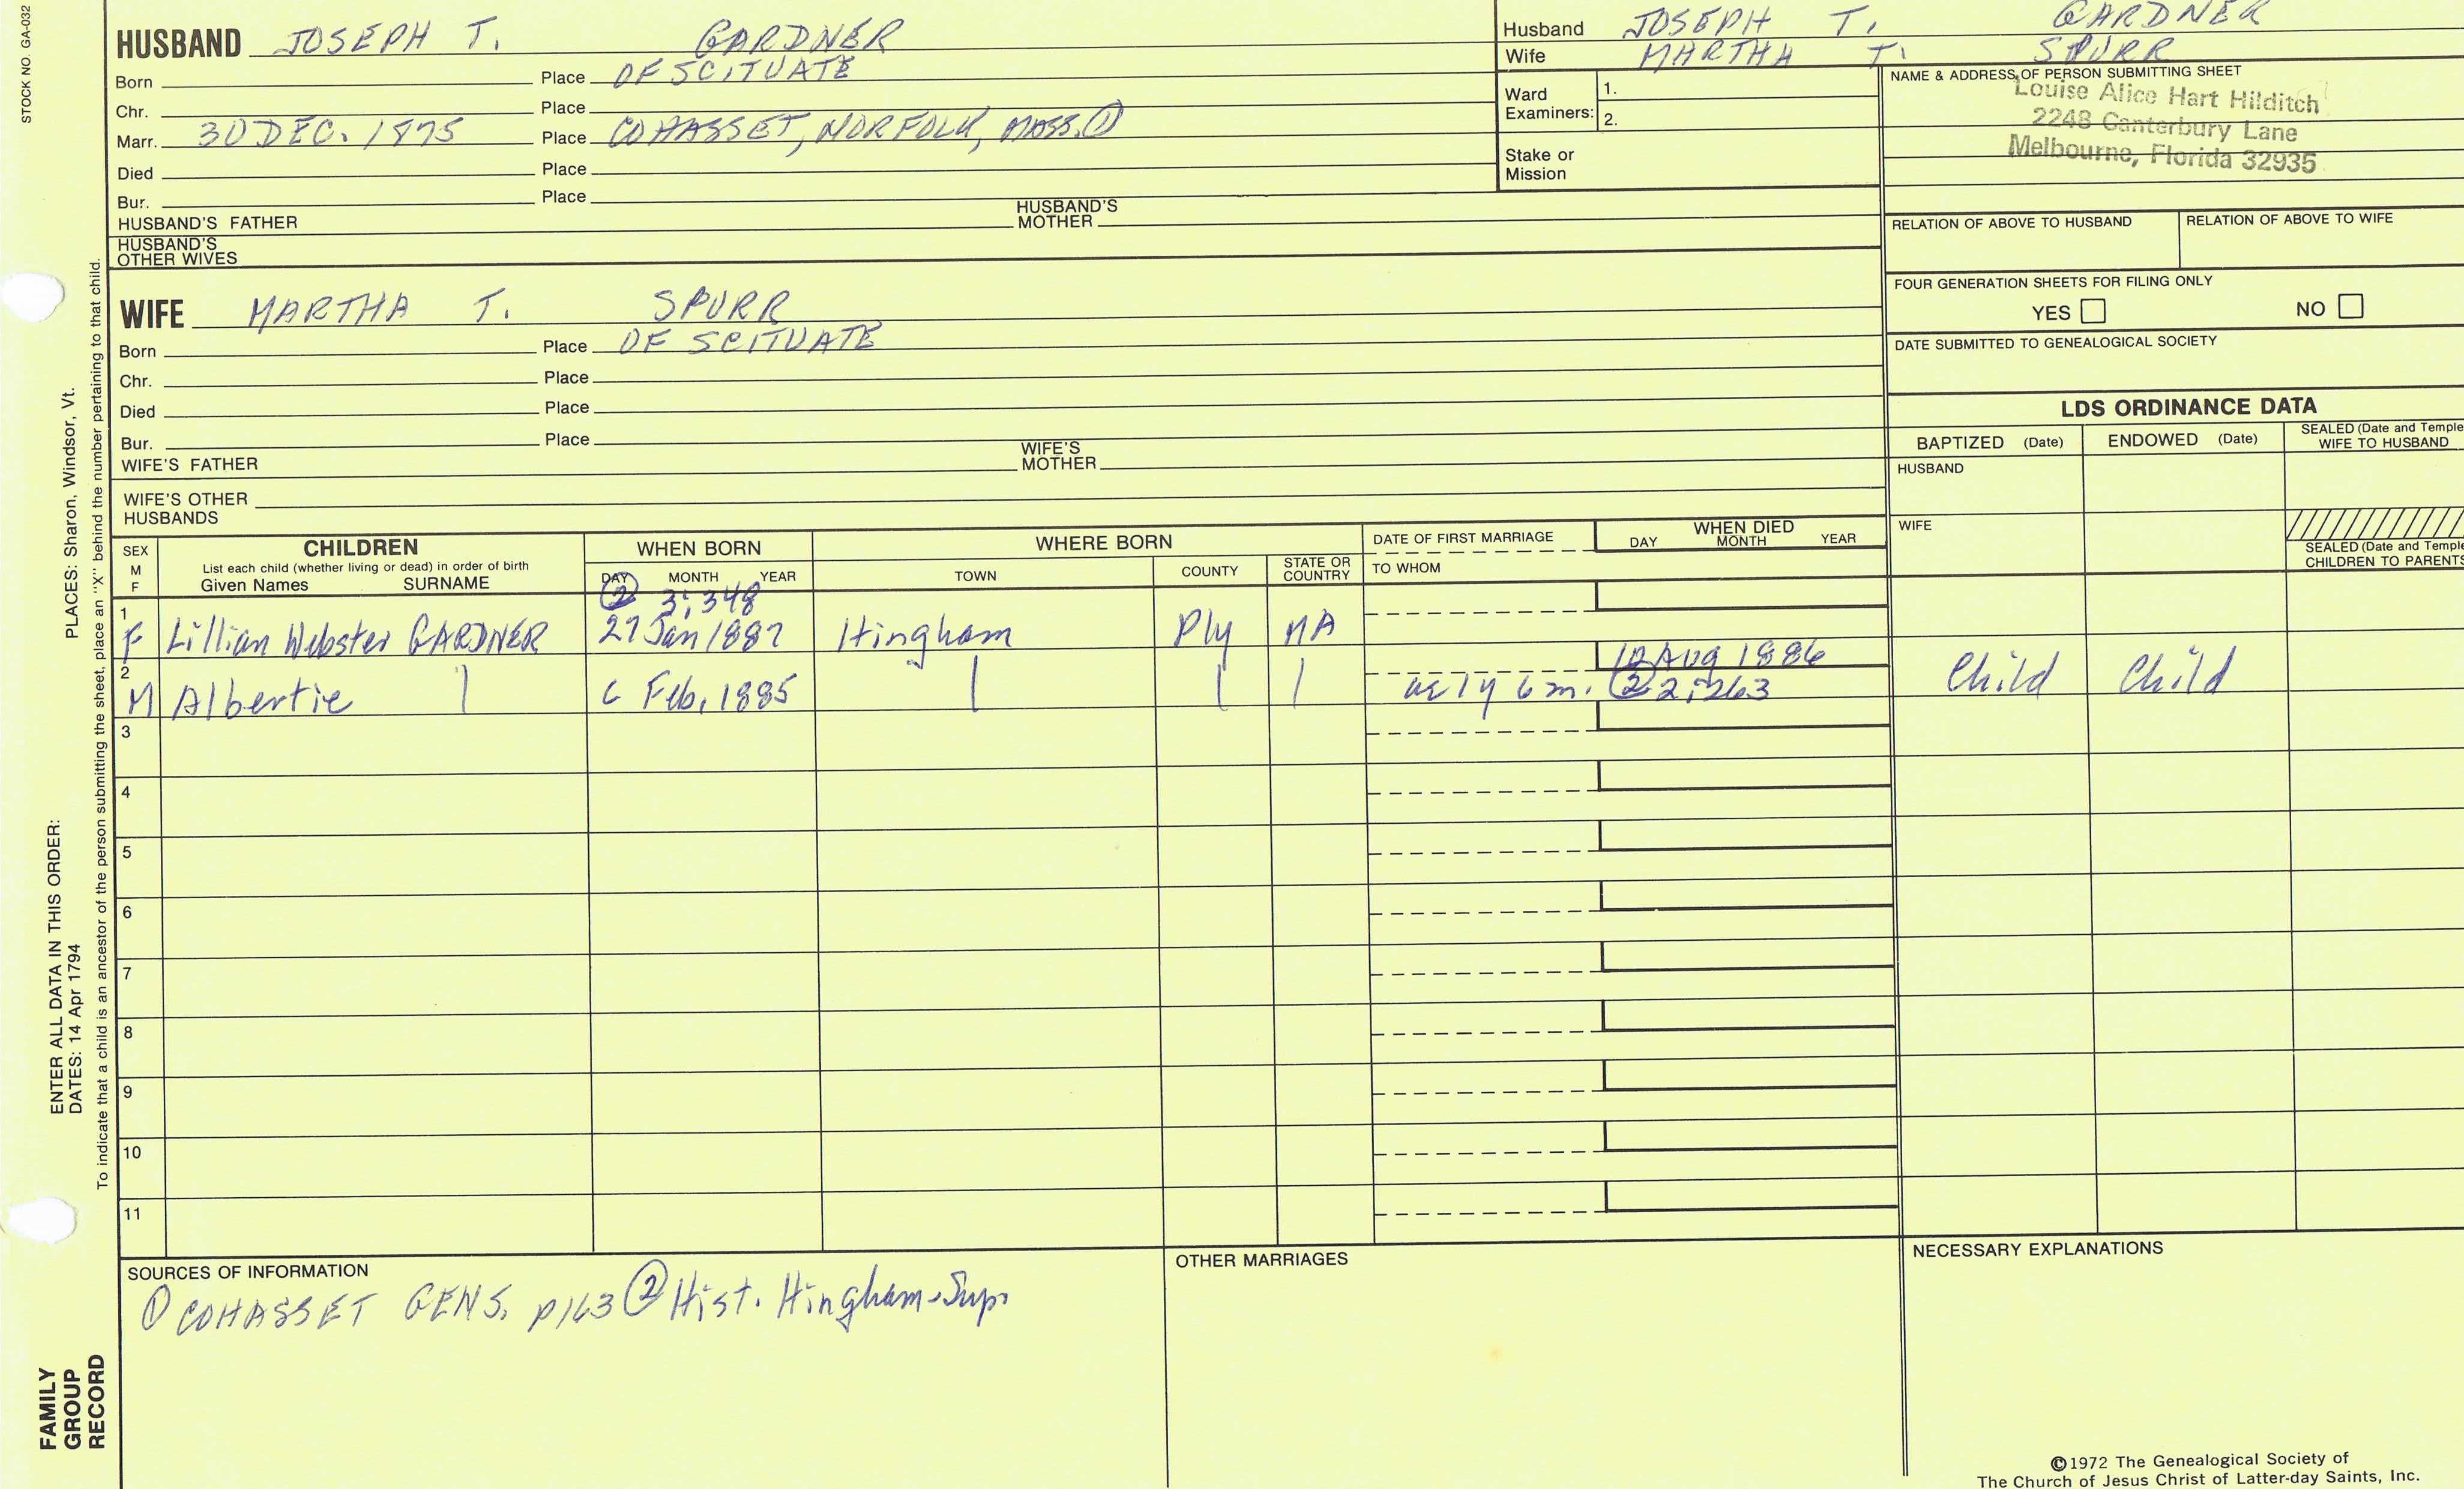 STOCK NO. GA-032
HUSBAND JOSEPH T. GARDNER
Born Place OF SCITUATE
Chr. Place
Marr. 30 DEC. 1875 Place COHASSET, NORFOLK, MASS. ①
Died Place
Bur. Place
HUSBAND'S FATHER HUSBAND'S MOTHER
HUSBAND'S OTHER WIVES
Husband JOSEPH T. GARDNER
Wife MARTHA T. SPURR
Ward Examiners: 1.
2.
Stake or Mission
NAME & ADDRESS OF PERSON SUBMITTING SHEET
Louise Alice Hart Hilditch
2248 Canterbury Lane
Melbourne, Florida 32935
RELATION OF ABOVE TO HUSBAND RELATION OF ABOVE TO WIFE
FOUR GENERATION SHEETS FOR FILING ONLY
YES NO
DATE SUBMITTED TO GENEALOGICAL SOCIETY
WIFE MARTHA T. SPURR
Born Place OF SCITUATE
Chr. Place
Died Place
Bur. Place
WIFE'S FATHER WIFE'S MOTHER
WIFE'S OTHER HUSBANDS
LDS ORDINANCE DATA
BAPTIZED (Date) ENDOWED (Date) SEALED (Date and Temple WIFE TO HUSBAND
HUSBAND
WIFE
SEALED (Date and Temple CHILDREN TO PARENTS
SEX M F
CHILDREN
List each child (whether living or dead) in order of birth
Given Names SURNAME
WHEN BORN
DAY MONTH YEAR
WHERE BORN
TOWN COUNTY STATE OR COUNTRY
DATE OF FIRST MARRIAGE
TO WHOM
WHEN DIED
DAY MONTH YEAR
② 3:348
1 F Lillian Webster GARDNER 27 Jan 1887 Hingham Ply MA
12 Aug 1886
2 M Albertie | c Feb, 1885 | | | ae 1y 6m. ② 2:263 Child Child
3
4
5
6
7
8
9
10
11
SOURCES OF INFORMATION
① COHASSET GENS. p163 ② Hist. Hingham-Sup.
OTHER MARRIAGES
NECESSARY EXPLANATIONS
PLACES: Sharon, Windsor, Vt.
ENTER ALL DATA IN THIS ORDER:
DATES: 14 Apr 1794
To indicate that a child is an ancestor of the person submitting the sheet, place an "X" behind the number pertaining to that child.
FAMILY
GROUP
RECORD
©1972 The Genealogical Society of
The Church of Jesus Christ of Latter-day Saints, Inc.